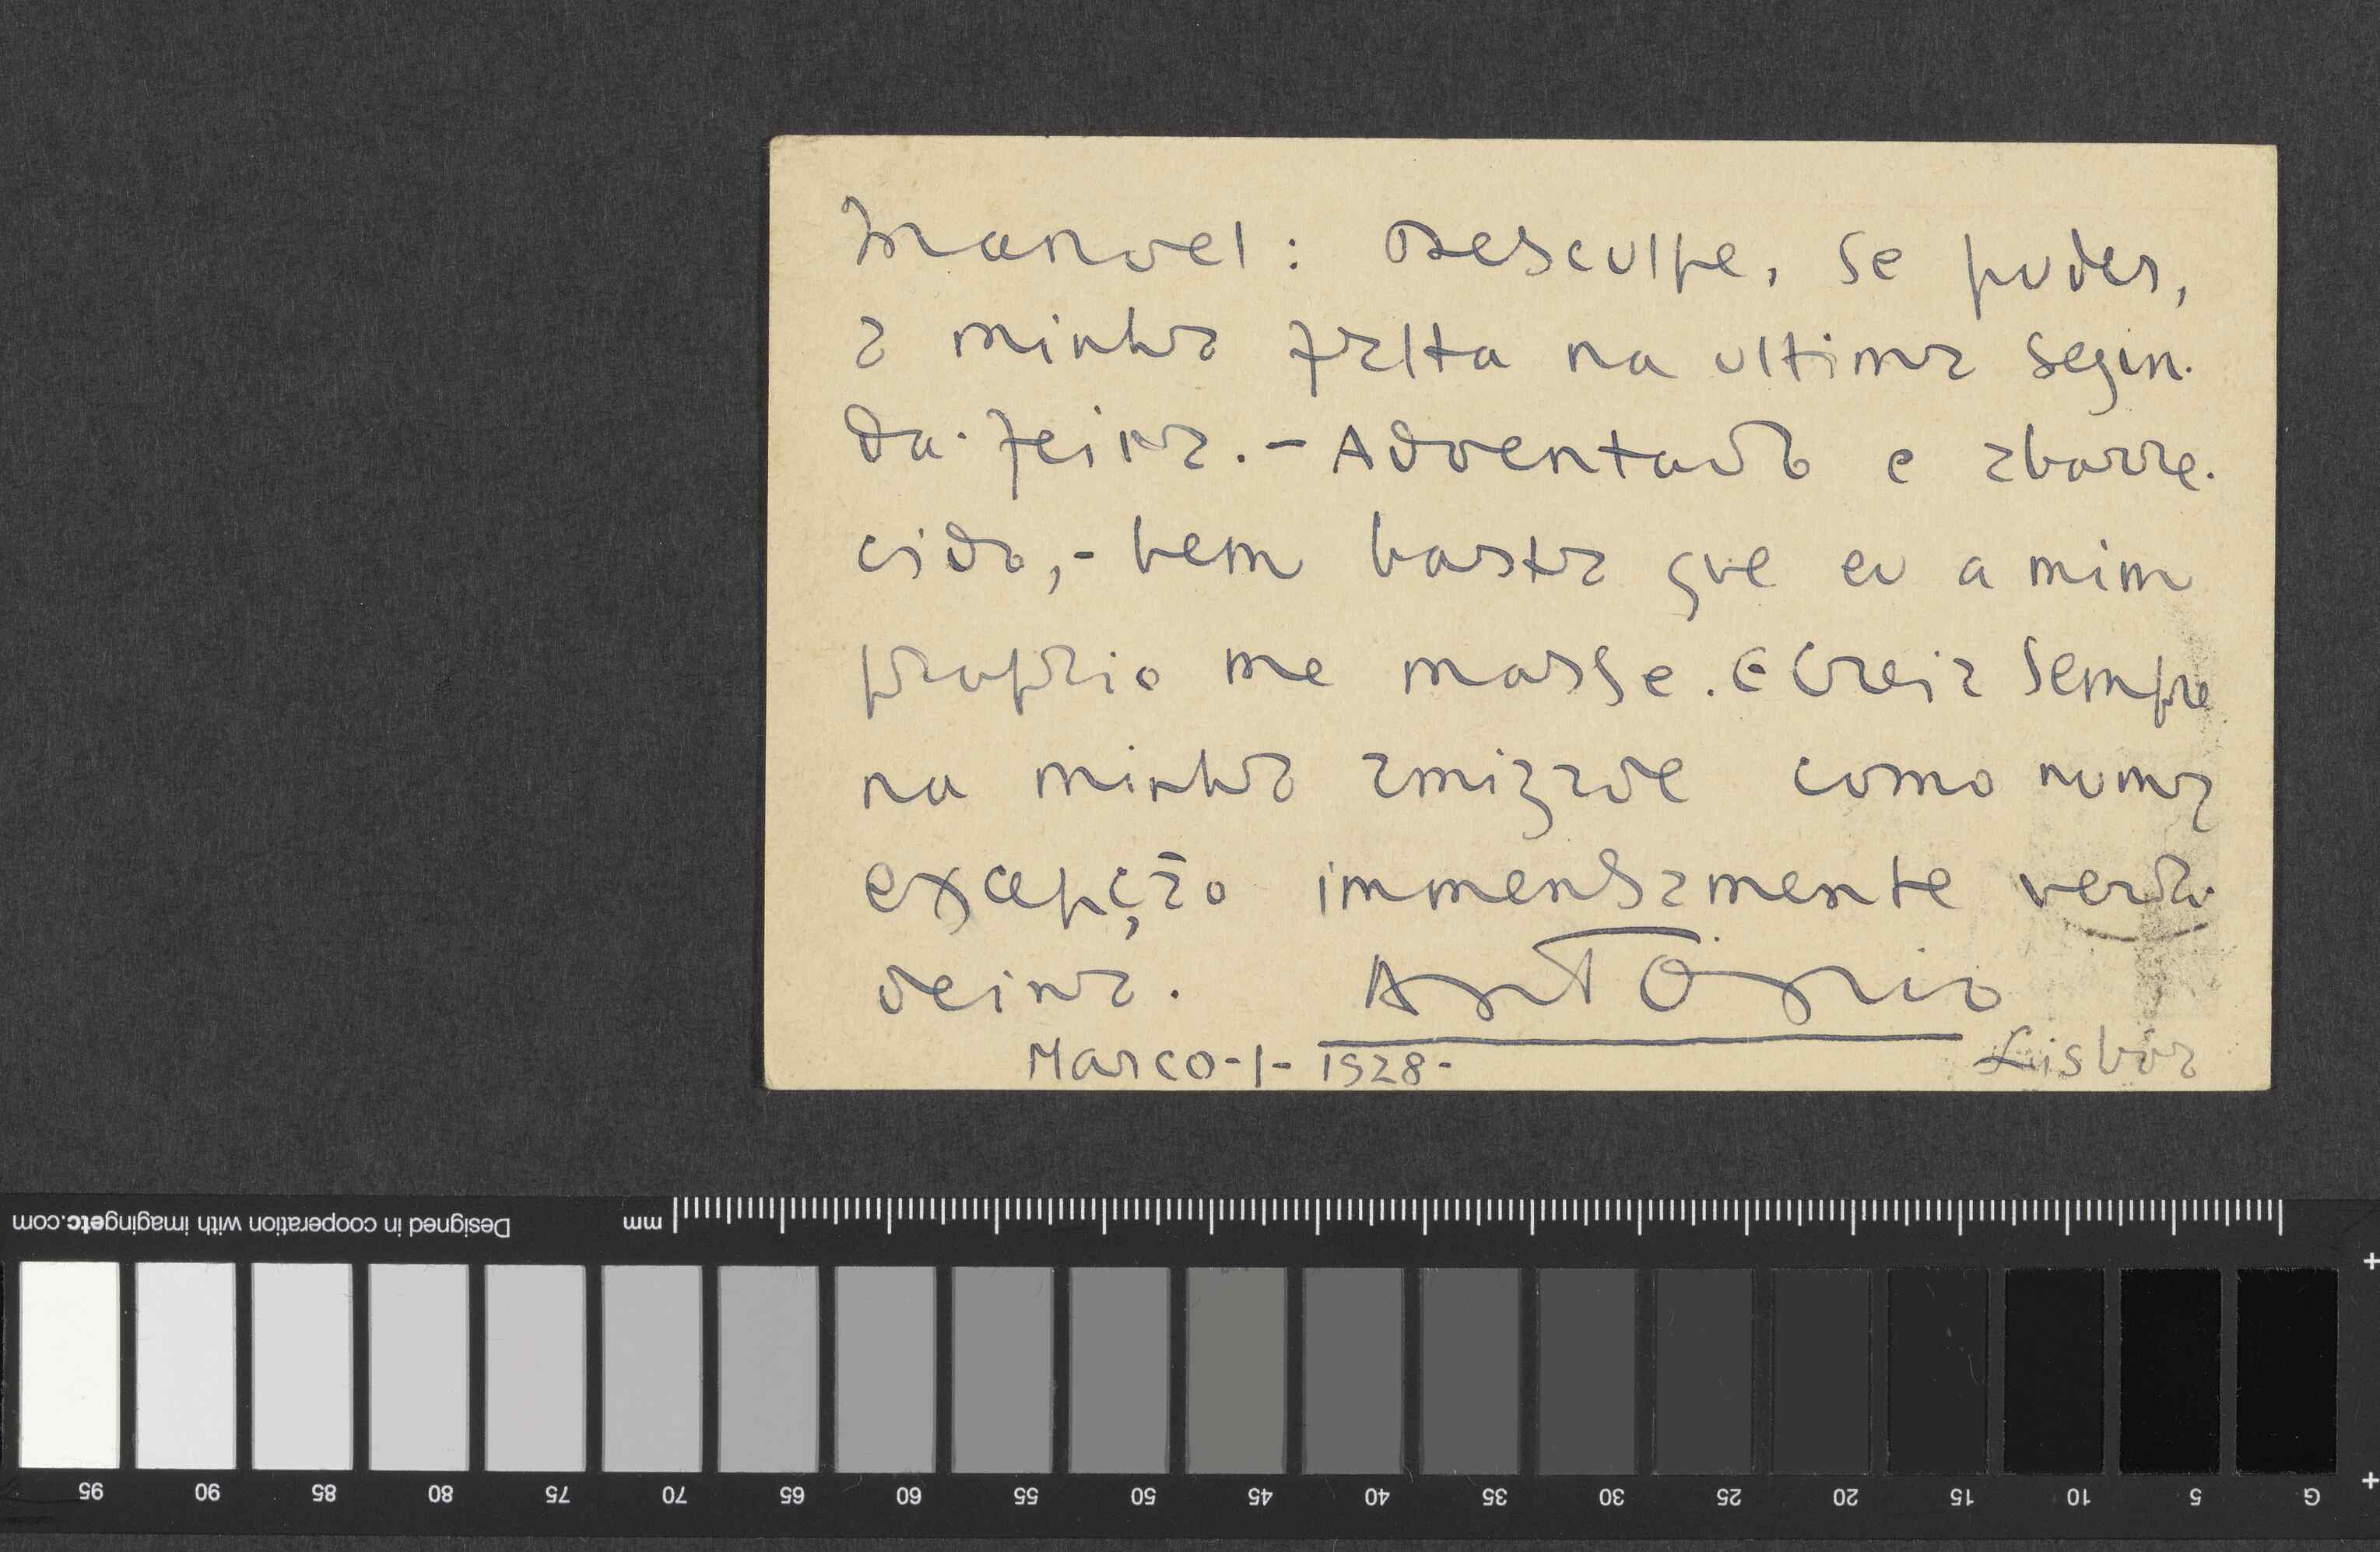 Manoel: Desculpe, se puder,
a minha falta na ultima segun-
da-feira. - Adoentado e aborre-
cido, - bem basta que eu a mim
proprio me masse. E creia sempre
na minha amizade como numa
excepção immensamente verda-
deira. António
Março-1-1928- Lisboa
Designed in cooperation with imagingetc.com mm
95 90 85 80 75 70 65 60 55 50 45 40 35 30 25 20 15 10 5 G